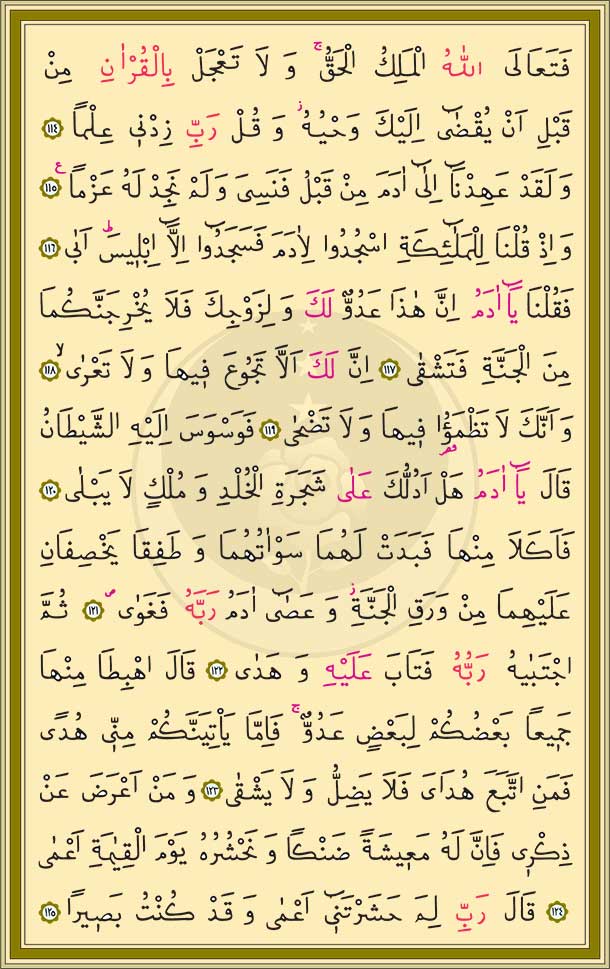 فَتَعَالَى اللّٰهُ الْمَلِكُ الْحَقُّۚ وَ لَا تَعْجَلْ بِالْقُرْاٰنِ مِنْ
قَبْلِ اَنْ يُقْضٰٓى اِلَيْكَ وَحْيُهُۘ وَ قُلْ رَبِّ زِدْنٖى عِلْماً ﴿١١٤﴾
وَ لَقَدْ عَهِدْنَٓا اِلٰٓى اٰدَمَ مِنْ قَبْلُ فَنَسِىَ وَ لَمْ نَجِدْ لَهُ عَزْماً ع ﴿١١٥﴾
وَ اِذْ قُلْنَا لِلْمَلٰٓئِكَةِ اسْجُدُوا لِاٰدَمَ فَسَجَدُٓوا اِلَّٓا اِبْلٖيسَؕ اَبٰى ﴿١١٦﴾
فَقُلْنَا يَٓا اٰدَمُ اِنَّ هٰذَا عَدُوٌّ لَكَ وَ لِزَوْجِكَ فَلَا يُخْرِجَنَّكُمَا
مِنَ الْجَنَّةِ فَتَشْقٰى ﴿١١٧﴾ اِنَّ لَكَ اَلَّا تَجُوعَ فٖيهَا وَ لَا تَعْرٰىۙ ﴿١١٨﴾
وَ اَنَّكَ لَا تَظْمَؤُ۬ا فٖيهَا وَ لَا تَضْحٰى ﴿١١٩﴾ فَوَسْوَسَ اِلَيْهِ الشَّيْطَانُ
قَالَ يَٓا اٰدَمُ هَلْ اَدُلُّكَ عَلٰى شَجَرَةِ الْخُلْدِ وَ مُلْكٍ لَا يَبْلٰى ﴿١٢٠﴾
فَاَكَلَا مِنْهَا فَبَدَتْ لَهُمَا سَوْاٰتُهُمَا وَ طَفِقَا يَخْصِفَانِ
عَلَيْهِمَا مِنْ وَرَقِ الْجَنَّةِؗ وَ عَصٰٓى اٰدَمُ رَبَّهُ فَغَوٰىۖ ﴿١٢١﴾ ثُمَّ
اجْتَبٰيهُ رَبُّهُ فَتَابَ عَلَيْهِ وَ هَدٰى ﴿١٢٢﴾ قَالَ اهْبِطَا مِنْهَا
جَمٖيعاً بَعْضُكُمْ لِبَعْضٍ عَدُوٌّۚ فَاِمَّا يَاْتِيَنَّكُمْ مِنّٖى هُدًى
فَمَنِ اتَّبَعَ هُدَاىَ فَلَا يَضِلُّ وَ لَا يَشْقٰى ﴿١٢٣﴾ وَ مَنْ اَعْرَضَ عَنْ
ذِكْرٖى فَاِنَّ لَهُ مَعٖيشَةً ضَنْكاً وَ نَحْشُرُهُ يَوْمَ الْقِيٰمَةِ اَعْمٰى
﴿١٢٤﴾ قَالَ رَبِّ لِمَ حَشَرْتَنٖٓى اَعْمٰى وَ قَدْ كُنْتُ بَصٖيراً ﴿١٢٥﴾